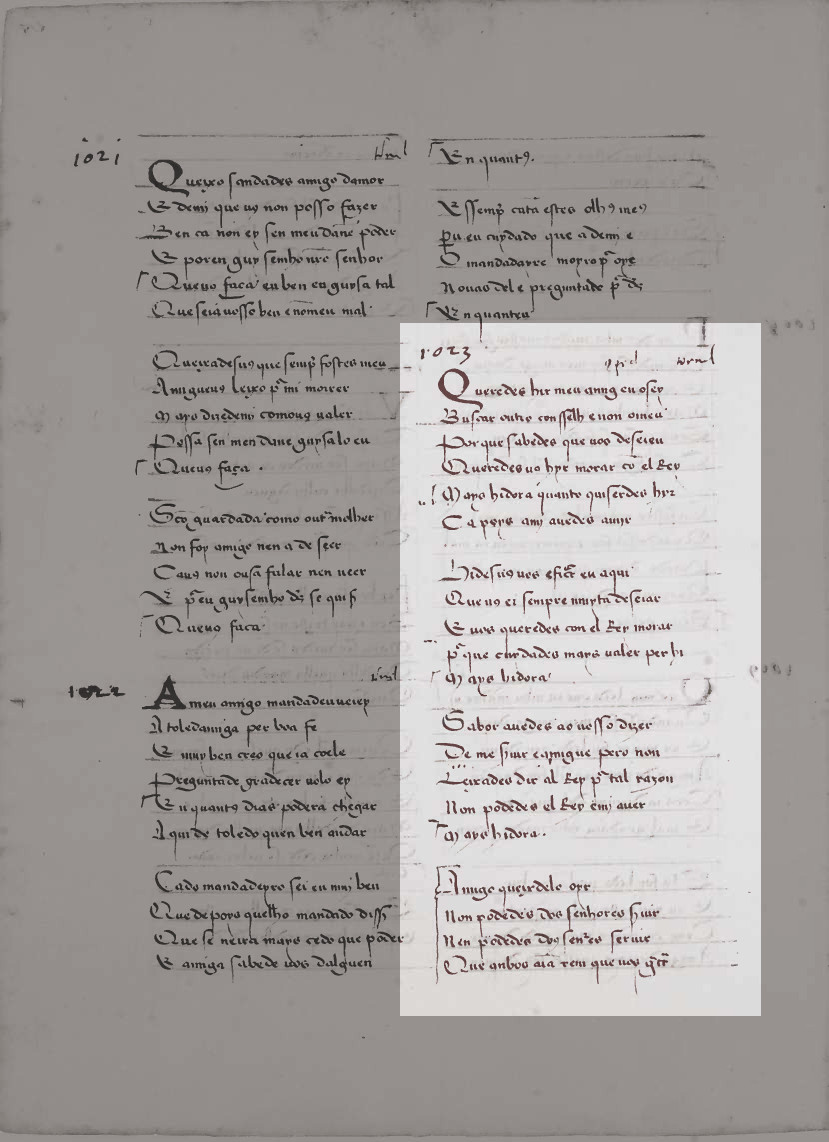 1021
Queixosandades amigo damor
E demj que uꝯ non posso fazer
Ben ca non ey sen meu dane poder
E poren guysemho nr̄e senhor
Queuo faca eu ben en guysa tal
Que seia uosso ben e nomeu mal
Queixadesuꝯ que semp̃ fostes meu
Amigueuꝯ leixo p̃ mi morrer
Mays dizedemi comouꝯ ualer
Possa sen meu dane guysalo eu
Queuꝯ faça
Sço guardada como out̃ molher
Non foy amigo nen a de seer
Cauꝯ non ousa falar nen ueer
E p̃ eu guysemho ds̃ se quis
Queuo faca
1022
A meu amigo mandadeu ueiey
A toledamiga per boa fe
E muy ben creo que ia coele
Preguntade gradecer uolo ey
En quantꝯ dias podera chegar
Aqui de toledo quen ben andar
Cado mandadeyro sei eu mui ben
Que depoys quelho mandado diss
Que se neira mays cedo que poder
E amiga sabede uos dalguen
En quantꝯ.
E ssemp̃ catã estes olhꝯ meꝯ
Pu eu cuydado que a demj e
O mandadeyre moyro p̃ oye
Nouas del e preguntade p̃ ds̃
En quanteu
1023
Queredes hir meu amig eu osey
Buscar outro conselh e non o meu
Porque sabedes que uos deseieu
Queredesuo hyr morar cõ el Rey
Mays hidora quanto quiserdes hyr
Ca poys amj auedes auijr
Hidesuꝯ uos e ficãr eu aqui
Que uꝯ ei sempre muyta deseiar
E uos queredes con el Rey morar
p̃ que cuydades mays ualer per hi
Mays hidora
Sabor auedes ao uosso dizer
De me ƒuir e amigue pero non
Leixades dir al Rey p̃ tal razon
Non podedes el Rey e mj auer
Mays hidora.
Amigo queixdelo oyr
Non podedes dos senhores ƒuir
Nen podedes doꝯ sen̄res seruir
Que anbos aiã rem que uos gc̃r